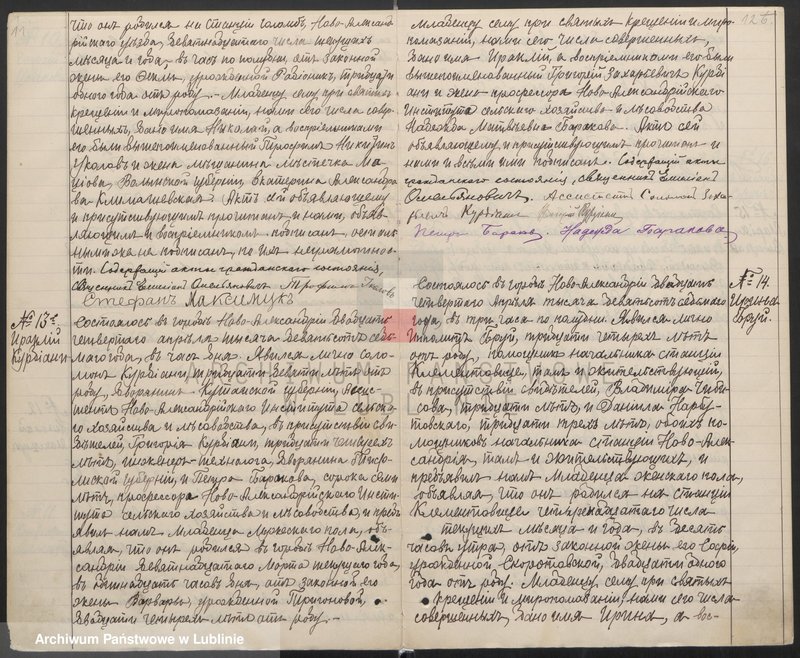 что онъ родился на станціи Голомбъ, Ново-Алексан-
дрійскаго уѣзда, девятнадцатаго числа текущихъ
мѣсяца и года, въ часъ по полудни, отъ законной
жены его урожденной тридцати
одного года отъ роду. — Младенцу сему при святыхъ
крещеніи и миропомазаніи, нами сего числа совер-
шенныхъ, дано имя Николай, а воспріемниками
его были вышепоименованный Трофимъ
и жена мѣщанина мѣстечка Ма-
цѣова, Волынской губерніи, Екатерина Александро-
ва Актъ сей объявляющему
и присутствующимъ прочитанъ, и нами, объяв-
ляющимъ и воспріемникомъ подписанъ, остальны-
ми не подписанъ, по ихъ неграмотнос-
ти. Содержащій акты гражданскаго состоянія,
Священникъ
Стефанъ Максимукъ
№ 13й
Ираклій
Курдіани
Состоялось въ городѣ Ново-Александріи двадцать
четвертаго апрѣля тысяча девятьсотъ седь-
маго года, въ часъ дня. Явился лично Соло-
монъ Курдіани, тридцати девяти лѣтъ отъ
роду, дворянинъ Кутаисской губерніи, Ассис-
тентъ Ново-Александрійскаго Института сельска-
го хозяйства и лѣсоводства, въ присутствіи сви-
дѣтелей, Григорія Курдіани, тридцати четырехъ
лѣтъ, инженеръ-технолога, дворянина Тифли-
сской губерніи, и Петра Баракова, сорока семи
лѣтъ, профессора Ново-Александрійскаго Инсти-
тута сельскаго хозяйства и лѣсоводства, и предъ-
явилъ намъ младенца мужескаго пола, объ-
являя, что онъ родился въ городѣ Ново-Алек-
сандріи девятнадцатаго марта текущаго года,
въ одиннадцать часовъ дня, отъ законной его
жены Варвары, урожденной
двадцати четырехъ лѣтъ отъ роду. —
126.
Младенцу сему при святыхъ крещеніи и миро-
помазаніи, нами сего числа совершенныхъ,
дано имя Ираклій, а воспріемниками его были
вышепоименованный Григорій Захарьевичъ Курді-
ани и жена профессора Ново-Александрійскаго
Института сельскаго хозяйства и лѣсоводства
Надежда Матвѣевна Баракова. Актъ сей
объявляющему и присутствующимъ прочитанъ и
нами и всѣми ими подписанъ. Содержащій акты
гражданскаго состоянія, священникъ
Ассистентъ Соломонъ
Курдіани
Петръ Бараковъ. Надежда Баракова
№ 14.
Ирина
Бруй.
Состоялось въ городѣ Ново-Александріи двадцать
четвертаго апрѣля тысяча девятьсотъ седьмаго
года, въ три часа по полудни. Явился лично
Ипполитъ Бруй, тридцати четырехъ лѣтъ
отъ роду, помощникъ начальника станціи
Клементовице, тамъ и жительствующій,
въ присутствіи свидѣтелей, Владиміра
тридцати лѣтъ, и Даніила Нарбу-
товскаго, тридцати трехъ лѣтъ, обоихъ по-
мощниковъ начальника станціи Ново-Алек-
сандрія, тамъ и жительствующихъ, и
предъявилъ намъ младенца женскаго пола,
объявляя, что онъ родился на станціи
Клементовице четырнадцатаго числа
текущихъ мѣсяца и года, въ десять
часовъ утра, отъ законной жены его Софіи,
урожденной Скоротовской, двадцати одного
года отъ роду. Младенцу сему при святыхъ
крещеніи и миропомазаніи, нами сего числа
совершенныхъ, дано имя Ирина, а вос-
Archiwum Państwowe w Lublinie